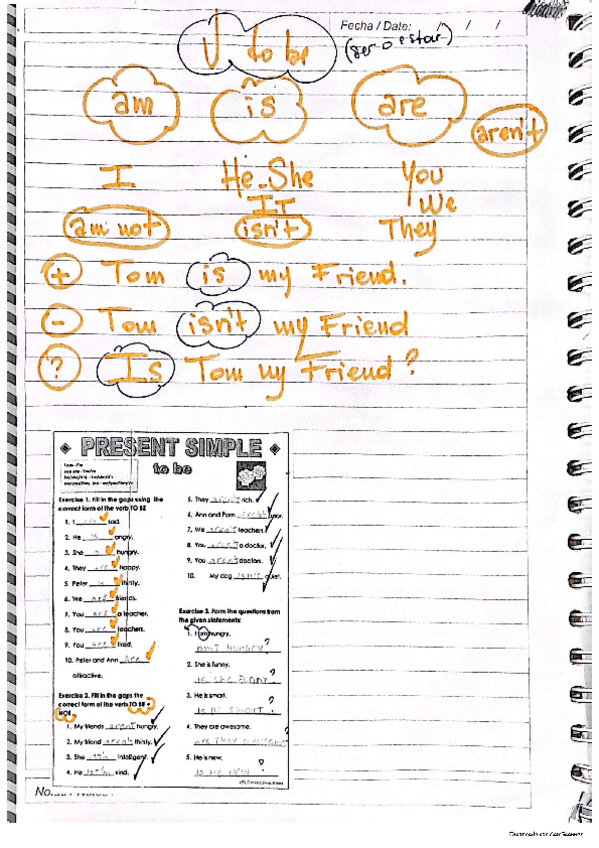 Fecha / Date: / / /
to be
(ser o estar)
am is are
aren't
I He-She You
IT We
am not isn't They
+ Tom is my Friend.
- Tom isn't my Friend
? Is Tom my Friend?
PRESENT SIMPLE
to be
Exercise 1. Fill in the gaps using the
correct form of the verb TO BE
1. I sad.
2. He is angry.
3. She hungry.
4. They are happy.
5. Peter is thirsty.
6. We are friends.
7. You are a teacher.
8. You are teachers.
9. You are tired.
10. Peter and Ann are
attractive.
Exercise 2. Fill in the gaps the
correct form of the verb TO BE +
NOT
1. My friends aren't hungry.
2. My friend aren't thirsty.
3. She isn't intelligent.
4. He isn't kind.
5. They aren't rich.
6. Ann and Pam aren't poor.
7. We aren't teachers.
8. You aren't a doctor.
9. You aren't doctors.
10. My dog isn't quiet.
Exercise 3. Form the questions from
the given statements:
1. I am hungry.
am I hungry?
2. She is funny.
is she funny?
3. He is smart.
is he smart?
4. They are awesome.
are they awesome?
5. He is new.
is he new?